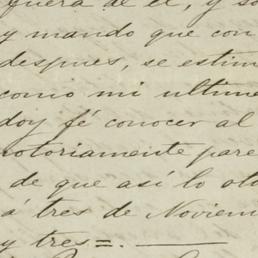 fuera de él, y so
y mando que con
despues, se estim
como mi ultima
doy fé conocer al
notoriamente pare
de que así lo oto
á tres de Noviem
y tres=.